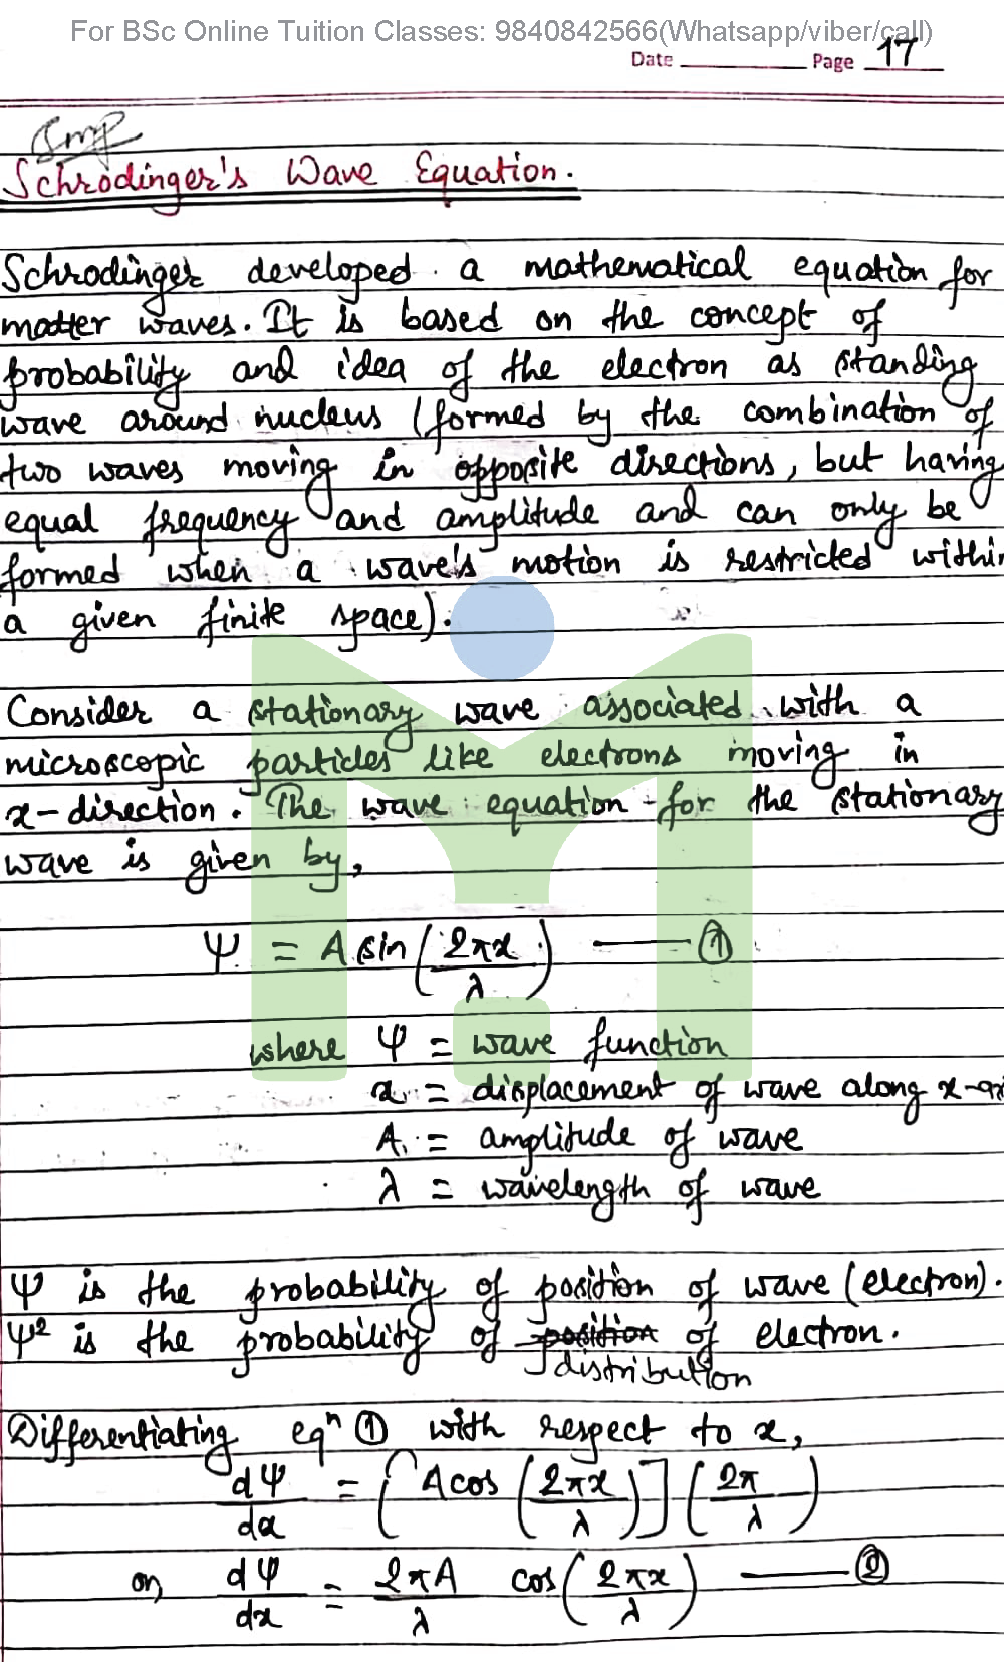 For BSc Online Tuition Classes: 9840842566(Whatsapp/viber/call)
Date ________ Page 17
Imp
Schrodinger's Wave Equation.
Schrodinger developed a mathematical equation for
matter waves. It is based on the concept of
probability and idea of the electron as standing
wave around nucleus (formed by the combination of
two waves moving in opposite directions, but having
equal frequency and amplitude and can only be
formed when a wave's motion is restricted within
a given finite space).
Consider a stationary wave associated with a
microscopic particles like electrons moving in
x-direction. The wave equation for the stationary
wave is given by,
Ψ = A sin(2πx/λ) —— ①
where Ψ = wave function
x = displacement of wave along x-axi
A = amplitude of wave
λ = wavelength of wave
Ψ is the probability of position of wave (electron).
Ψ² is the probability of position of electron.
distribution
Differentiating eqⁿ ① with respect to x,
dΨ/dx = [A cos (2πx/λ)] (2π/λ)
or, dΨ/dx = 2πA/λ cos(2πx/λ) —— ②